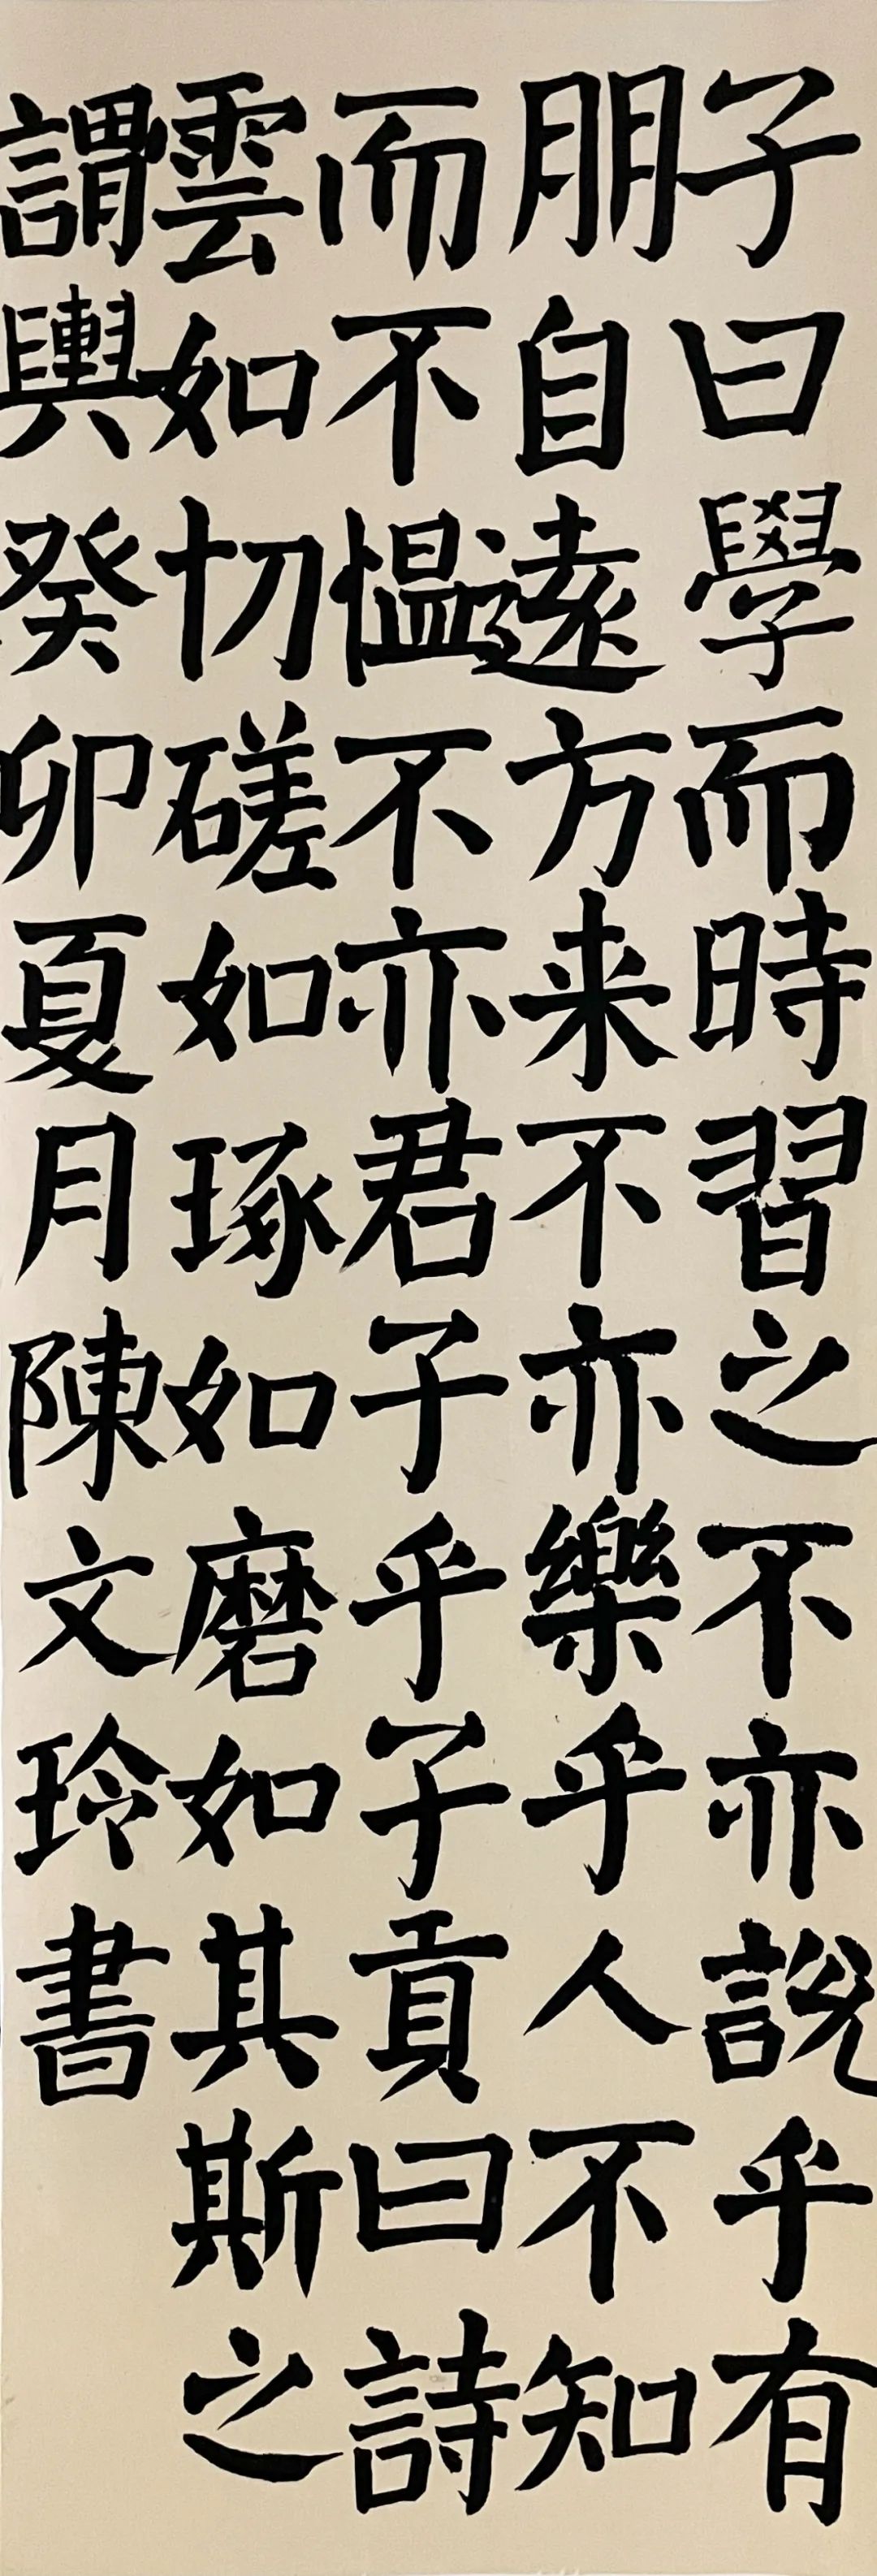 子曰學而時習之不亦說乎有
朋自遠方来不亦樂乎人不知
而不愠不亦君子乎子貢曰詩
雲如切磋如琢如磨如其斯之
謂輿癸卯夏月陳文玲書